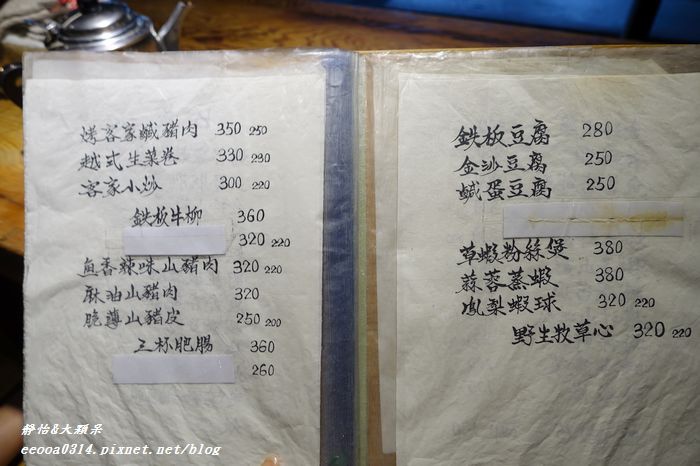 烤客家鹹豬肉 350 250
越式生菜卷 330 230
客家小炒 300 220
鉄板牛柳 360
320 220
魚香辣味山豬肉 320 220
麻油山豬肉 320
脆薄山豬皮 250 200
三杯肥腸 360
260
鉄板豆腐 280
金沙豆腐 250
鹹蛋豆腐 250
草蝦粉絲煲 380
蒜蓉蒸蝦 380
鳳梨蝦球 320 220
野生牧草心 320 220
靜怡&大顆呆
eeooa0314.pixnet.net/blog